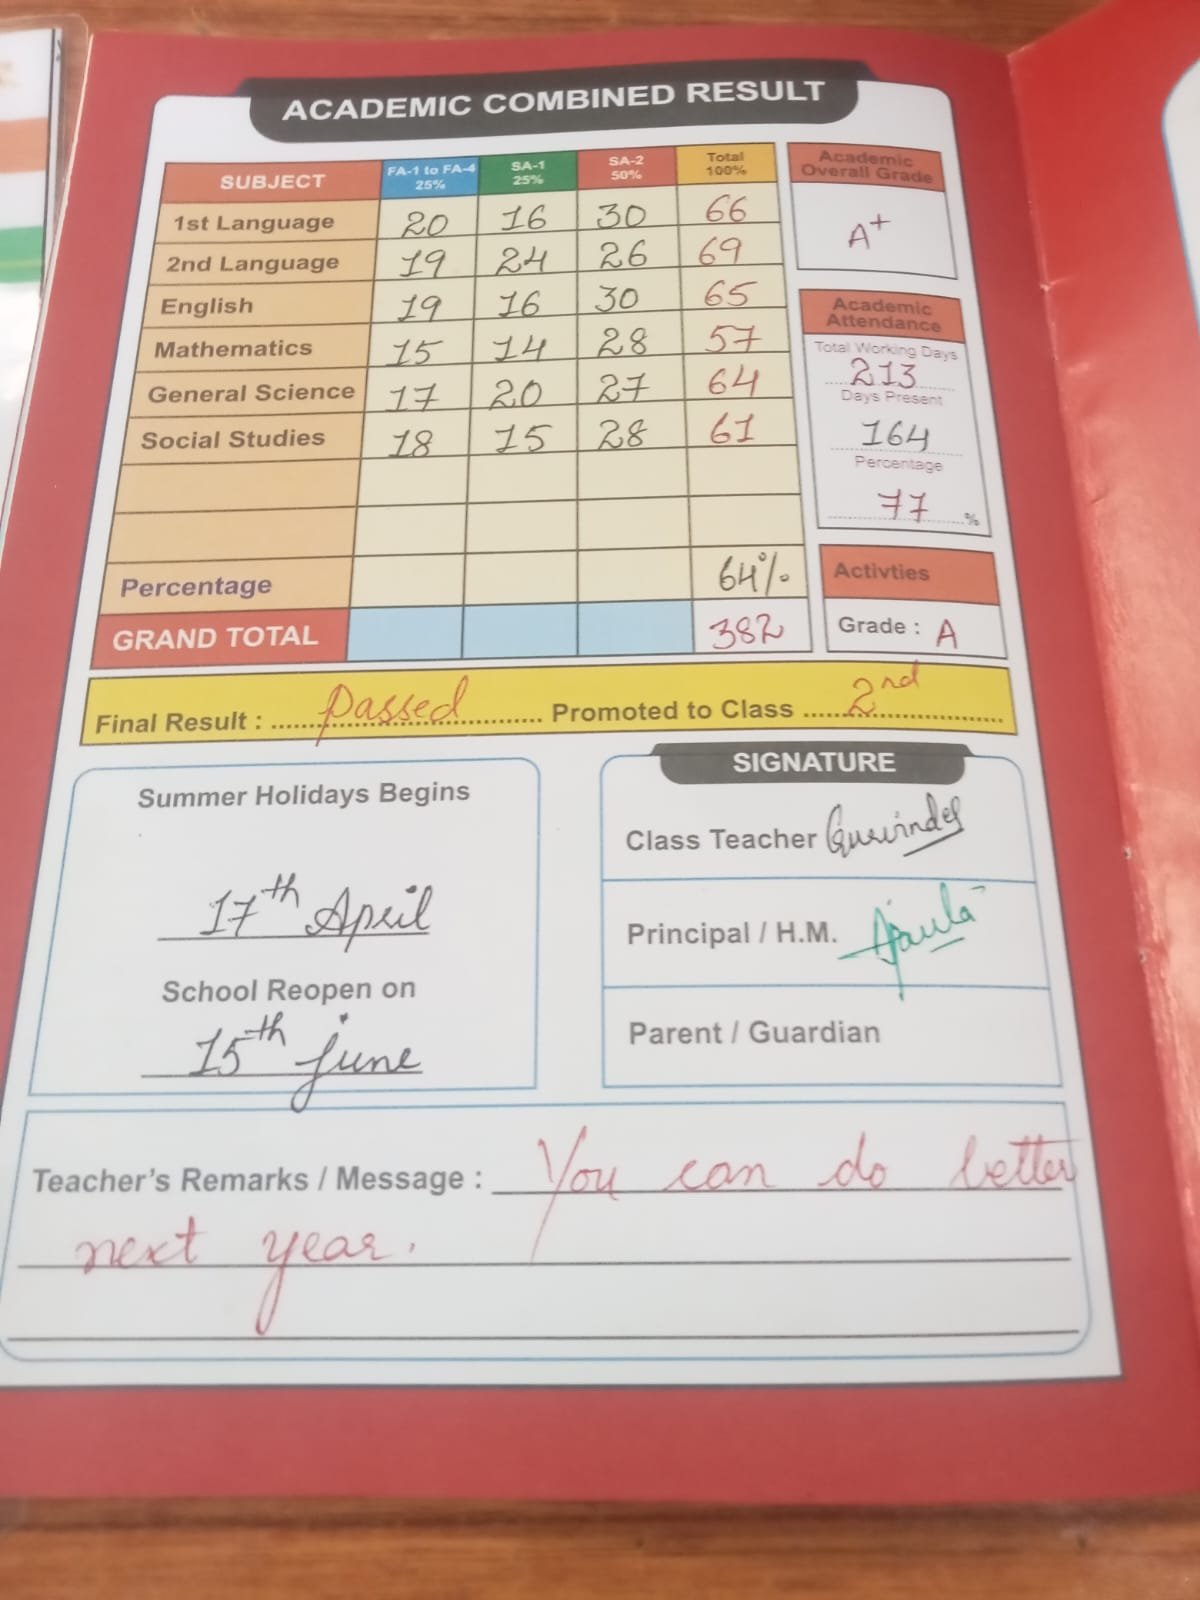 ACADEMIC COMBINED RESULT
SUBJECT FA-1 to FA-4 25% SA-1 25% SA-2 50% Total 100%
1st Language 20 16 30 66
2nd Language 19 24 26 69
English 19 16 30 65
Mathematics 15 14 28 57
General Science 17 20 27 64
Social Studies 18 15 28 61
Percentage 64%
GRAND TOTAL 382
Academic
Overall Grade
A+
Academic
Attendance
Total Working Days
213
Days Present
164
Percentage
77 %
Activties
Grade : A
Final Result : Passed Promoted to Class 2nd
Summer Holidays Begins
17th April
School Reopen on
15th June
SIGNATURE
Class Teacher
Principal / H.M.
Parent / Guardian
Teacher's Remarks / Message : You can do better
next year.